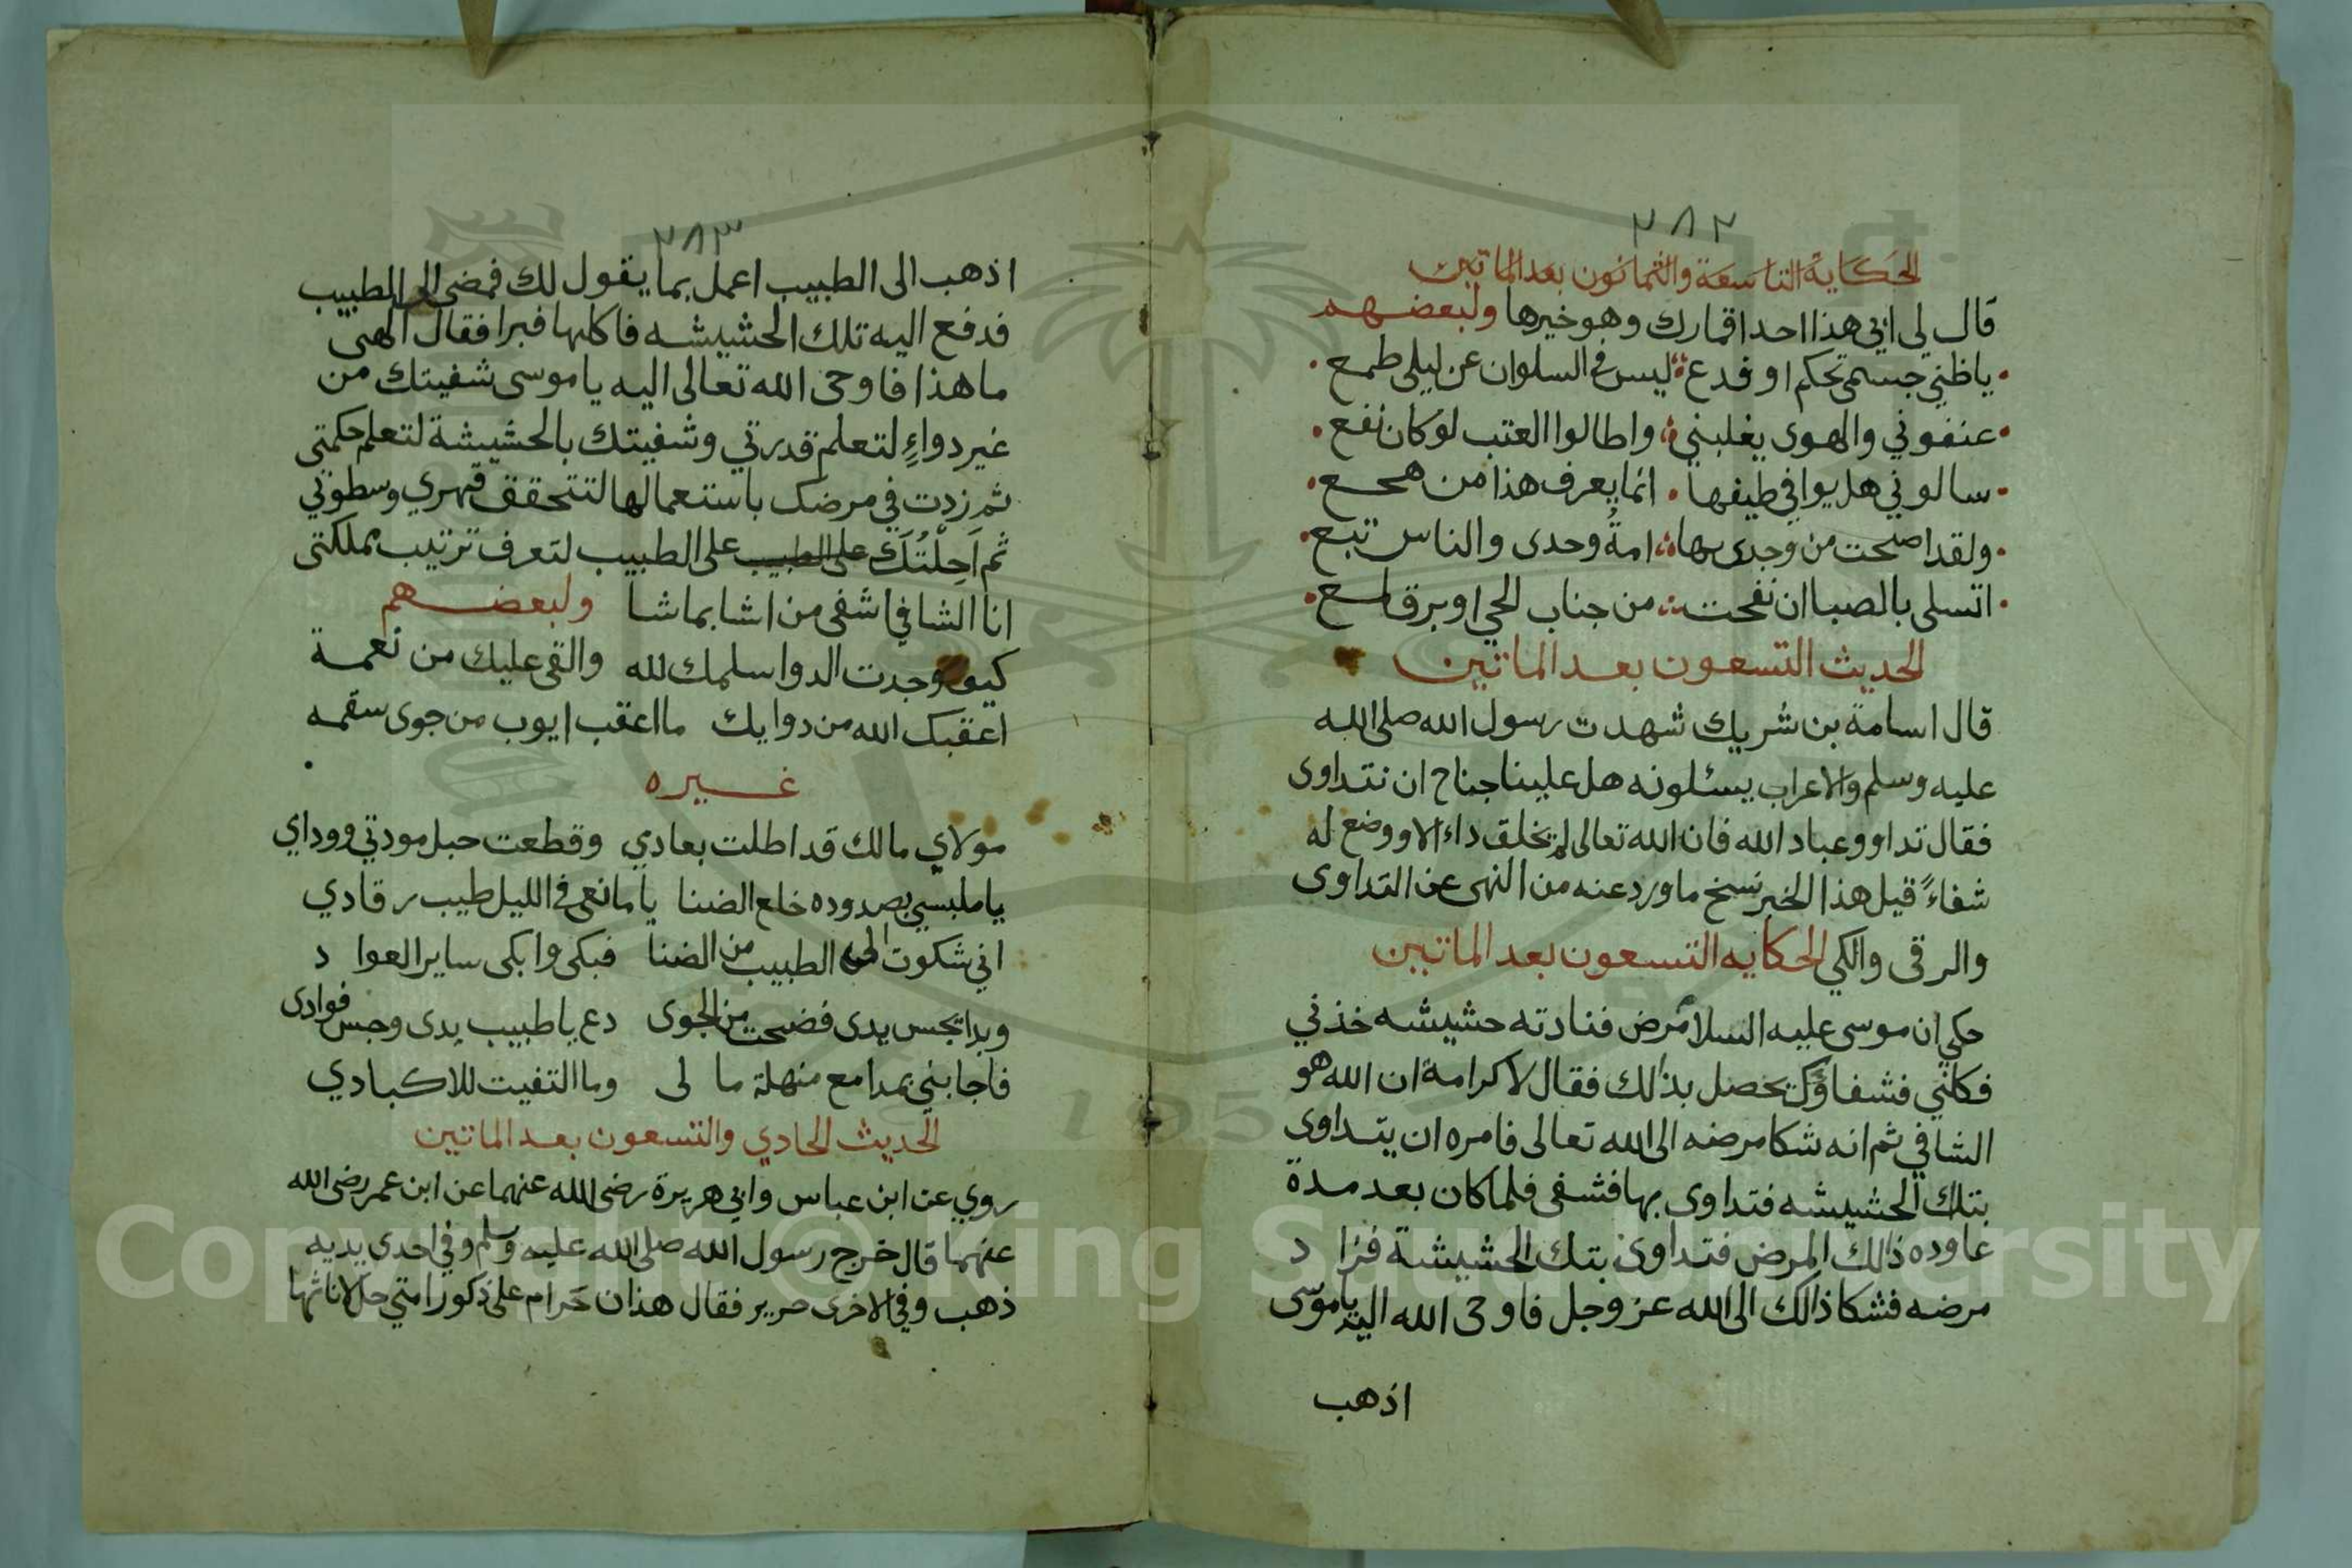 ٢٨٢
الحكاية التاسعة والثمانون بعد الماتين
قال لي ابي هذا احد اقمارك وهو خيرها ولبعضهم
ياظني جسمي تحكم او فدع ليس في السلوان عن ليلى طمع
عنفوني والهوى يغلبني واطالوا العتب لو كان نفع
سالوني هل يوافي طيفها انما يعرف هذا من هجع
ولقد اصبحت من وجدى بها امةُ وحدى والناس تبع
اتسلى بالصبا ان نفحت من جناب الحي او برق لمع
الحديث التسعون بعد الماتين
قال اسامة بن شريك شهدت رسول الله صلى الله
عليه وسلم والاعراب يسئلونه هل علينا جناح ان نتداوى
فقال تداووعباد الله فان الله تعالى لم يخلق داء الا ووضع له
شفاءً قيل هذا الخبر نسخ ما ورد عنه من النهى عن التداوى
والرقى والكي الحكايه التسعون بعد الماتين
حكي ان موسى عليه السلام مرض فنادته حشيشه خذني
فكلني فشفاؤك يحصل بذلك فقال لا كرامة ان الله هو
الشافي ثم انه شكا مرضه الى الله تعالى فامره ان يتداوى
بتلك الحشيشه فتداوى بها فشفى فلما كان بعد مدة
عاوده ذالك المرض فتداوى بتك الحشيشة فزاد
مرضه فشكا ذالك الى الله عز وجل فاوحى الله اليه ياموسى
اذهب
٢٨٣
اذهب الى الطبيب اعمل بما يقول لك فمضى الى الطبيب
فدفع اليه تلك الحشيشه فاكلها فبرا فقال الهى
ما هذا فاوحى الله تعالى اليه ياموسى شفيتك من
غير دواءٍ لتعلم قدرتي وشفيتك بالحشيشة لتعلم حكمتى
ثم زدت في مرضك باستعمالها لتتحقق قهري وسطوتي
ثم اَحِلْتُلَكَ على الطبيب على الطبيب لتعرف ترتيب مملكتى
انا الشافي اشفى من اشا بما شا ولبعضهم
كيف وجدت الدوا سلمك لله والقى عليك من نعمة
اعقبك الله من دوايك ما اعقب ايوب من جوى سقمه
غيره
مولاي مالك قد اطلت بعادي وقطعت حبل مودتي وودادي
ياملبسي بصدوده خلع الضنا يامانعى في الليل طيب رقادي
اني شكوت الى الطبيب من الضنا فبكى وابكى ساير العواد
وبدا يجس يدى فضحت من الجوى دع ياطبيب يدى وجس فوادى
فاجابني بمدامع منهلة ما لى وما التفيت للاكبادي
الحديث الحادي والتسعون بعد الماتين
روي عن ابن عباس وابي هريرة رضى الله عنهما عن ابن عمر رضى الله
عنهما قال خرج رسول الله صلى الله عليه وسلم وفي احدى يديه
ذهب وفي الاخرى حرير فقال هذان حَرام على ذكور امتي حل لاناثها
Copyright © King Saud University
1957